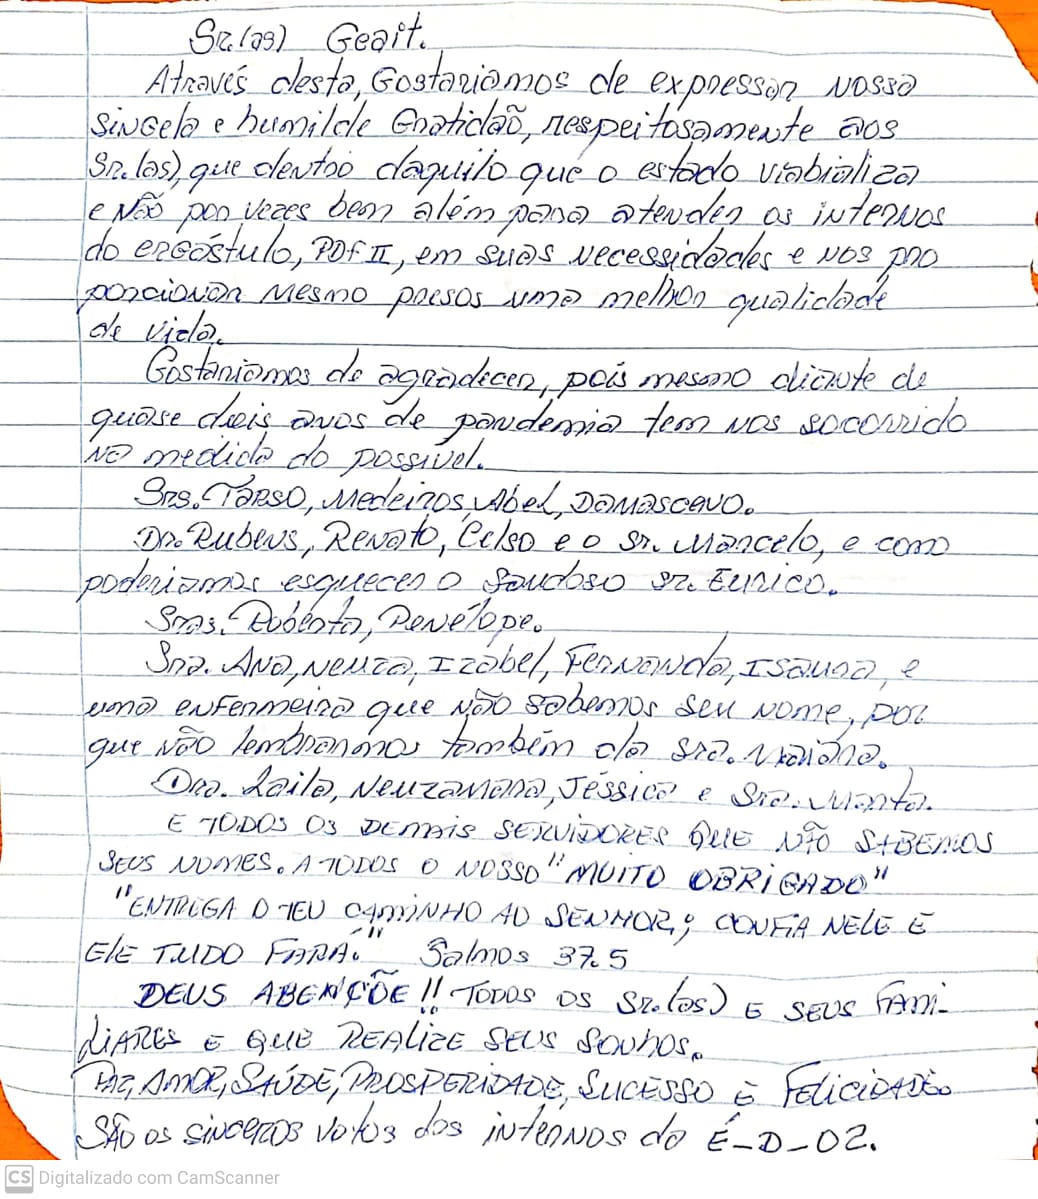 Sr.(as) Geait.
Através desta, Gostariamos de expressar nossa
singela e humilde Gratidão, respeitosamente aos
Sr.(as), que dentro daquilo que o estado viabializa
e não por vezes bem além para atender os internos
do ergástulo, PDF II, em suas necessidades e nos pro
porcionar mesmo presos uma melhor qualidade
de vida.
Gostariamos de agradecer, pois mesmo diante de
quase dois anos de pandemia tem nos socorrido
na medida do possível.
Srs. Tarso, Medeiros, Abel, Damasceno.
Dr. Rubens, Renato, Celso e o Sr. Marcelo, e como
poderiamos esquecer o saudoso Sr. Eurico.
Sras. Roberta, Penélope.
Sra. Ana, Neuza, Izabel, Fernanda, Isaura, e
uma enfermeira que não sabemos seu nome, por
que não lembrarmos também da Sra.
Dra. Laila, Neuzamara, Jéssica e Sra. Marta.
E TODOS OS DEMAIS SERVIDORES QUE NÃO SABEMOS
SEUS NOMES. A TODOS O NOSSO "MUITO OBRIGADO"
"ENTREGA O TEU CAMINHO AO SENHOR; CONFIA NELE E
ELE TUDO FARÁ." Salmos 37.5
DEUS ABENÇÕE!! TODOS OS Sr.(as) E SEUS FAMI-
LIARES E QUE REALIZE SEUS SONHOS.
PAZ, AMOR, SAÚDE, PROSPERIDADE, SUCESSO E FELICIDADE.
SÃO OS SINCEROS VOTOS dos internos do É-D-02.
CS Digitalizado com CamScanner